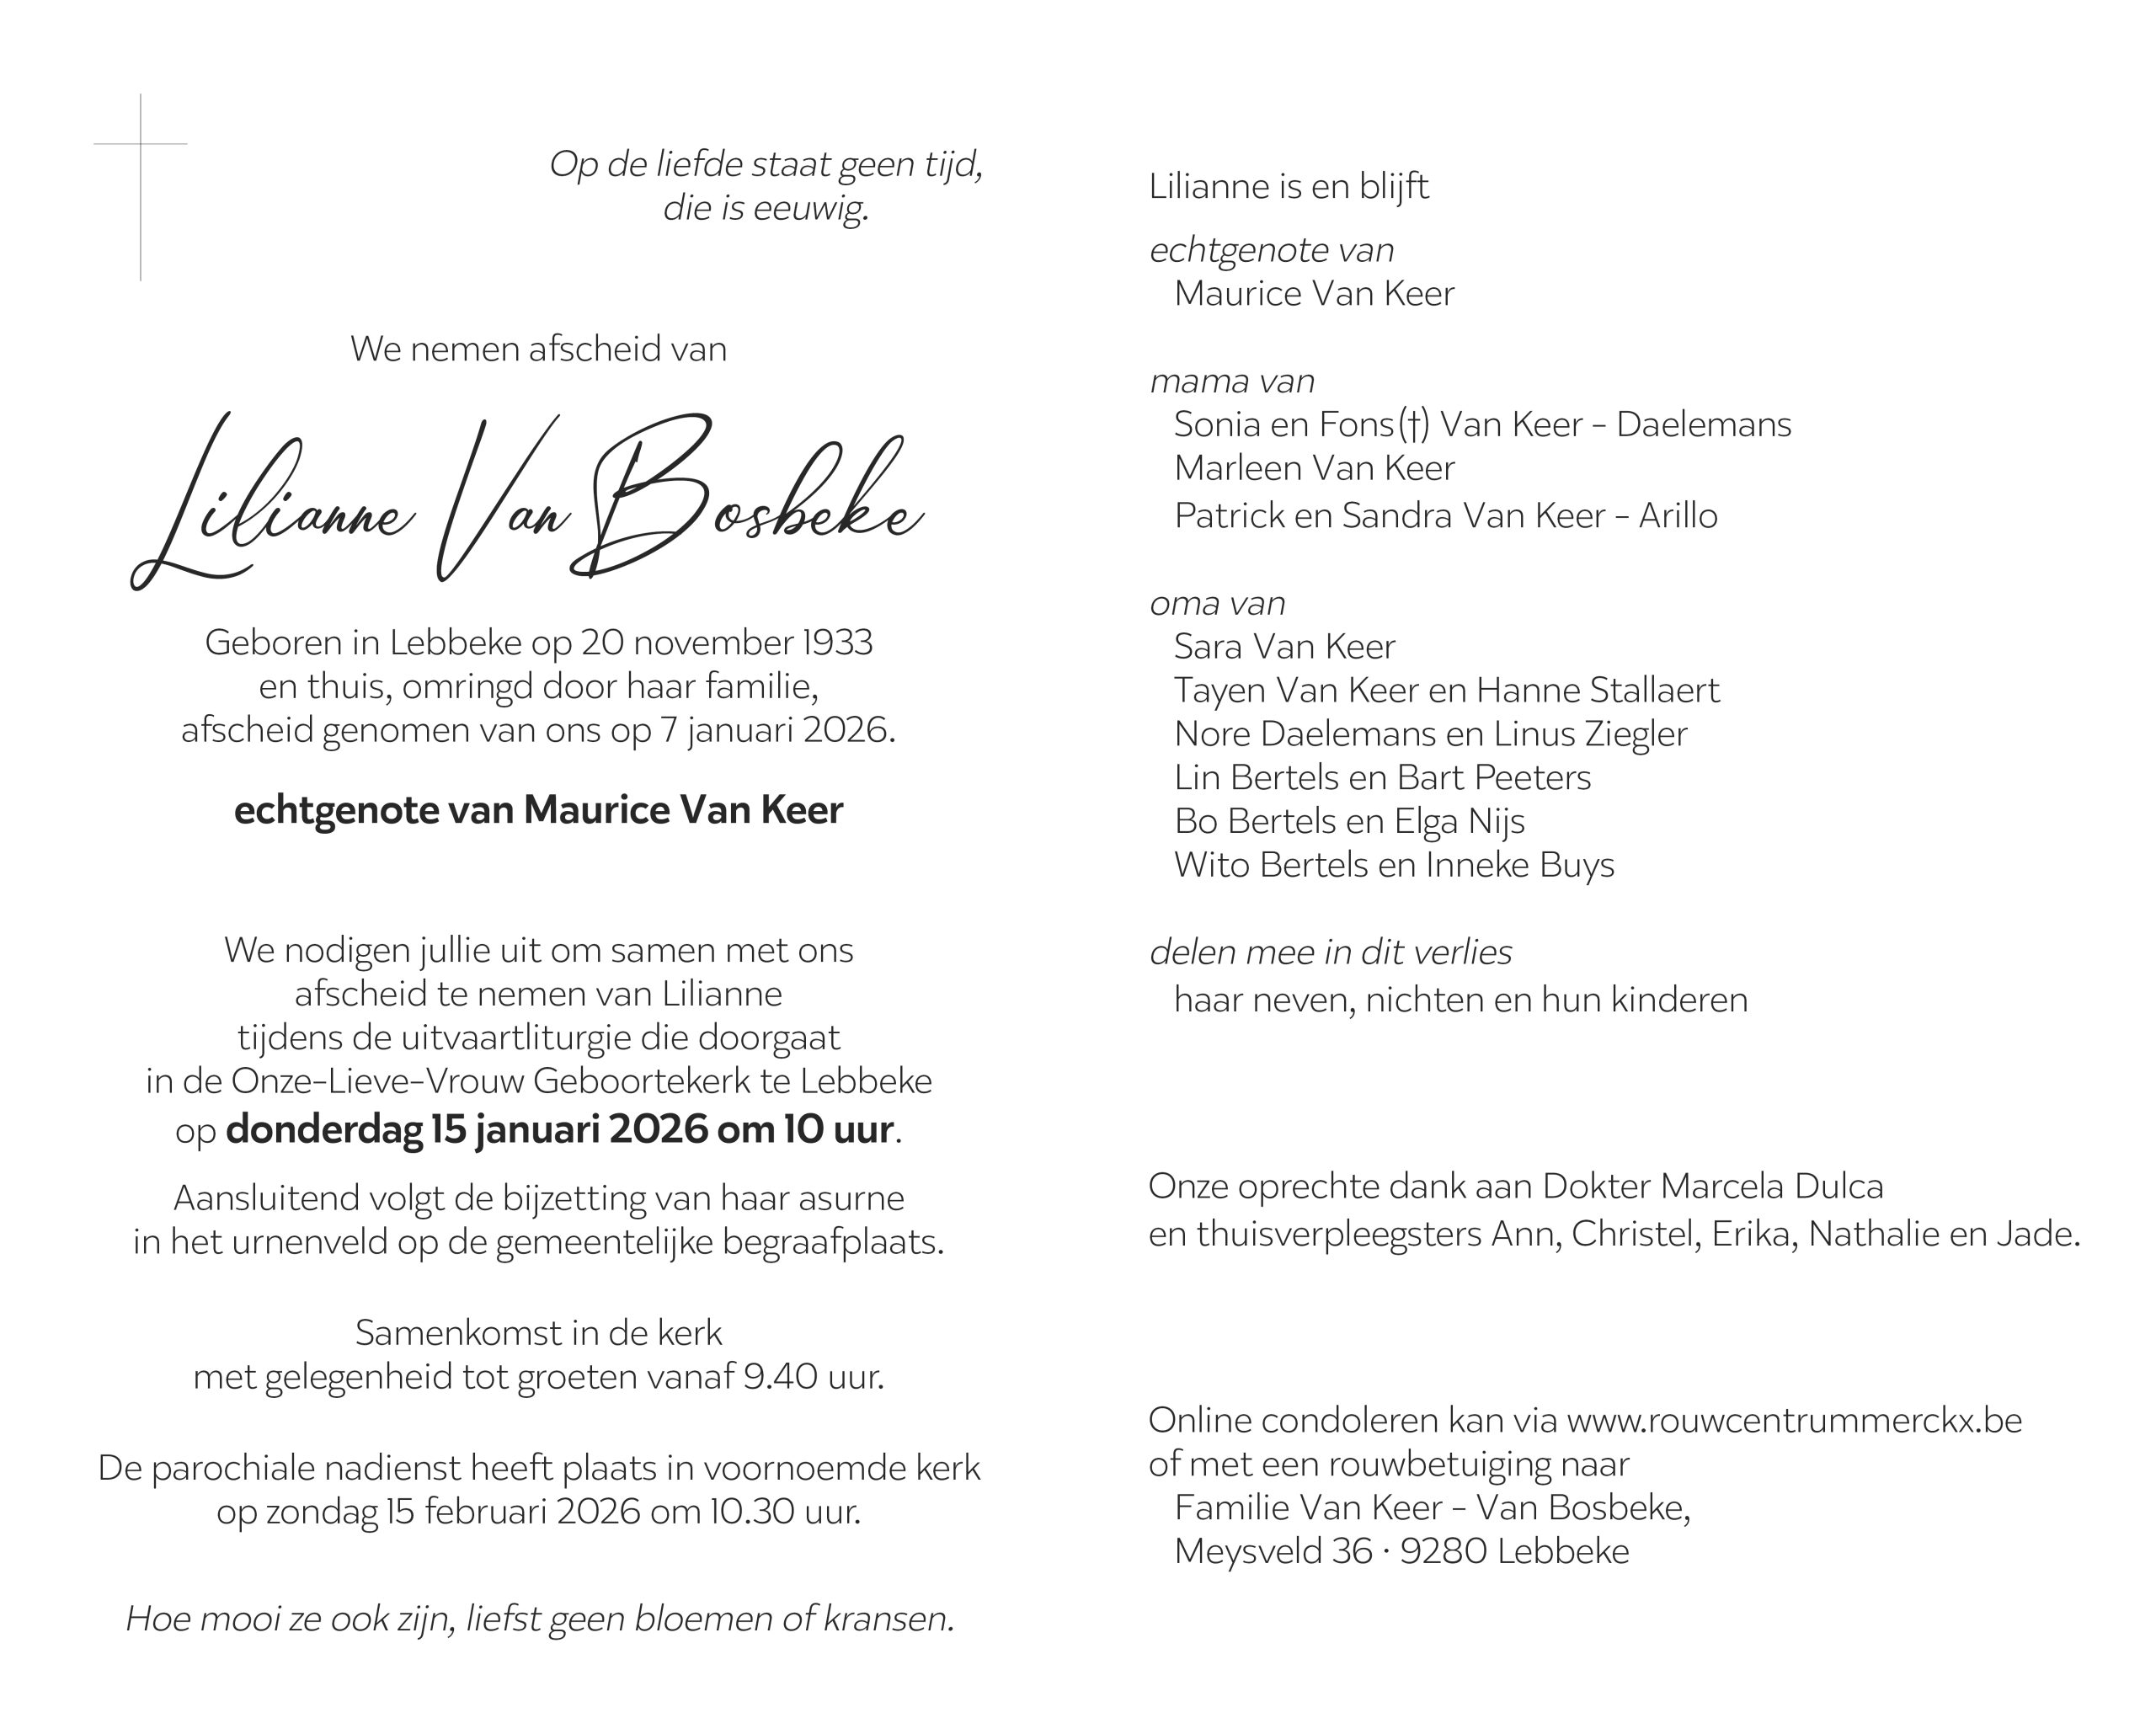 Op de liefde staat geen tijd,
die is eeuwig.
We nemen afscheid van
Lilianne Van Bosbeke
Geboren in Lebbeke op 20 november 1933
en thuis, omringd door haar familie,
afscheid genomen van ons op 7 januari 2026.
echtgenote van Maurice Van Keer
We nodigen jullie uit om samen met ons
afscheid te nemen van Lilianne
tijdens de uitvaartliturgie die doorgaat
in de Onze-Lieve-Vrouw Geboortekerk te Lebbeke
op donderdag 15 januari 2026 om 10 uur.
Aansluitend volgt de bijzetting van haar asurne
in het urnenveld op de gemeentelijke begraafplaats.
Samenkomst in de kerk
met gelegenheid tot groeten vanaf 9.40 uur.
De parochiale nadienst heeft plaats in voornoemde kerk
op zondag 15 februari 2026 om 10.30 uur.
Hoe mooi ze ook zijn, liefst geen bloemen of kransen.
Lilianne is en blijft
echtgenote van
Maurice Van Keer
mama van
Sonia en Fons(†) Van Keer - Daelemans
Marleen Van Keer
Patrick en Sandra Van Keer - Arillo
oma van
Sara Van Keer
Tayen Van Keer en Hanne Stallaert
Nore Daelemans en Linus Ziegler
Lin Bertels en Bart Peeters
Bo Bertels en Elga Nijs
Wito Bertels en Inneke Buys
delen mee in dit verlies
haar neven, nichten en hun kinderen
Onze oprechte dank aan Dokter Marcela Dulca
en thuisverpleegsters Ann, Christel, Erika, Nathalie en Jade.
Online condoleren kan via www.rouwcentrummerckx.be
of met een rouwbetuiging naar
Familie Van Keer - Van Bosbeke,
Meysveld 36 · 9280 Lebbeke